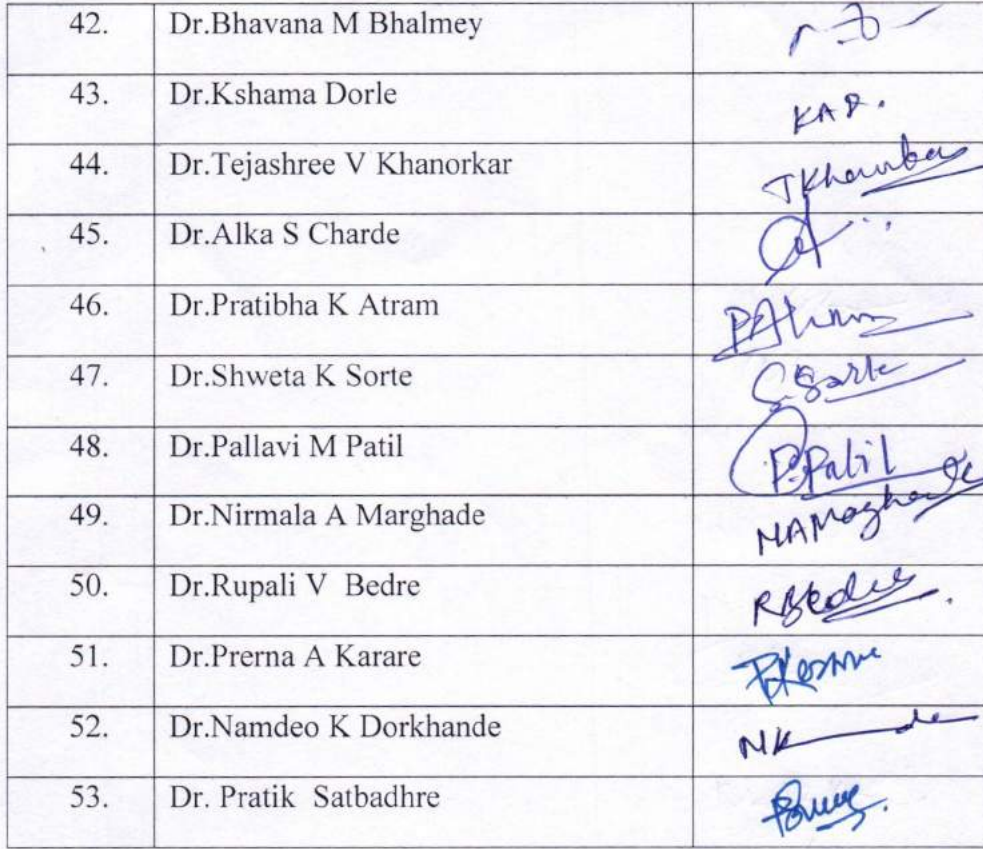 42. Dr.Bhavana M Bhalmey
43. Dr.Kshama Dorle KAD.
44. Dr.Tejashree V Khanorkar
45. Dr.Alka S Charde
46. Dr.Pratibha K Atram PAtram
47. Dr.Shweta K Sorte
48. Dr.Pallavi M Patil P.Patil
49. Dr.Nirmala A Marghade
50. Dr.Rupali V Bedre
51. Dr.Prerna A Karare
52. Dr.Namdeo K Dorkhande
53. Dr. Pratik Satbadhre